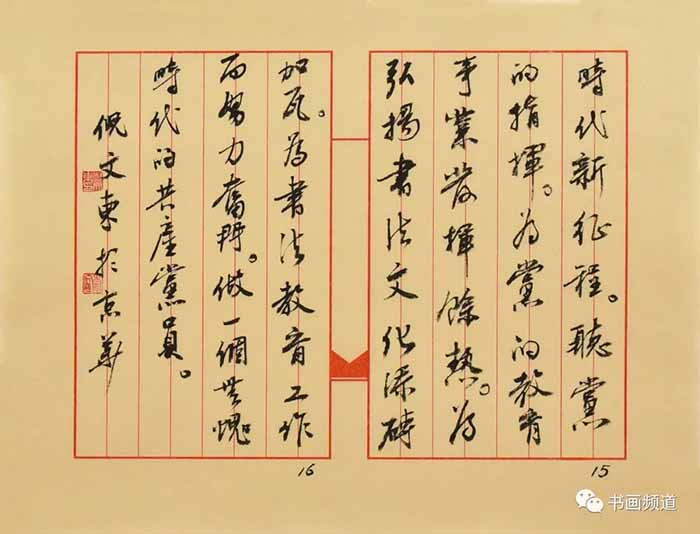 時代新征程。聽黨
的指揮。为黨的教育
事業發揮餘熱。为
弘揚書法文化添磚
15
加瓦。為書法教育工作
而努力奮鬥。做一個無愧
時代的共產黨員。
倪文東於京華
16
书画频道